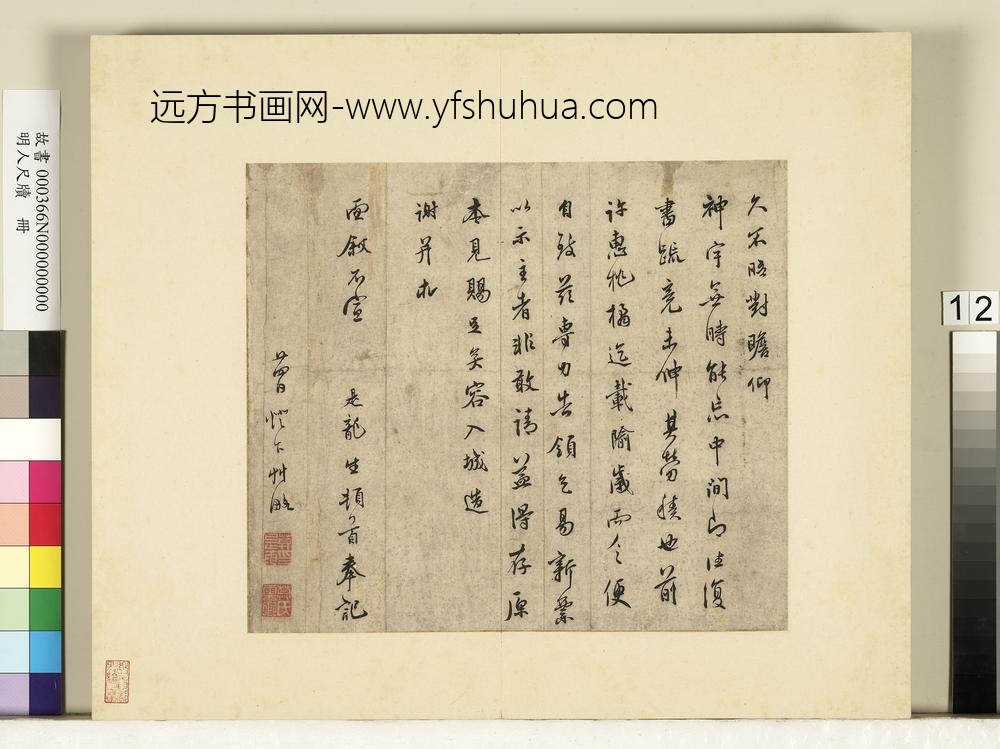 远方书画网-www.yfshuhua.com
故書 000366N000000000
明人尺牘 冊
12
久不晤對瞻仰
神宇無時能忘中間即往復
書疏竟未伸其勞積也前
許惠桃橘迄載隃歲而令便
自致茲專力告領乞易新藁
以示主者非敢請益得存原
本見賜足矣容入城造
謝并求
面敘不宣 是龍生頓首奉記